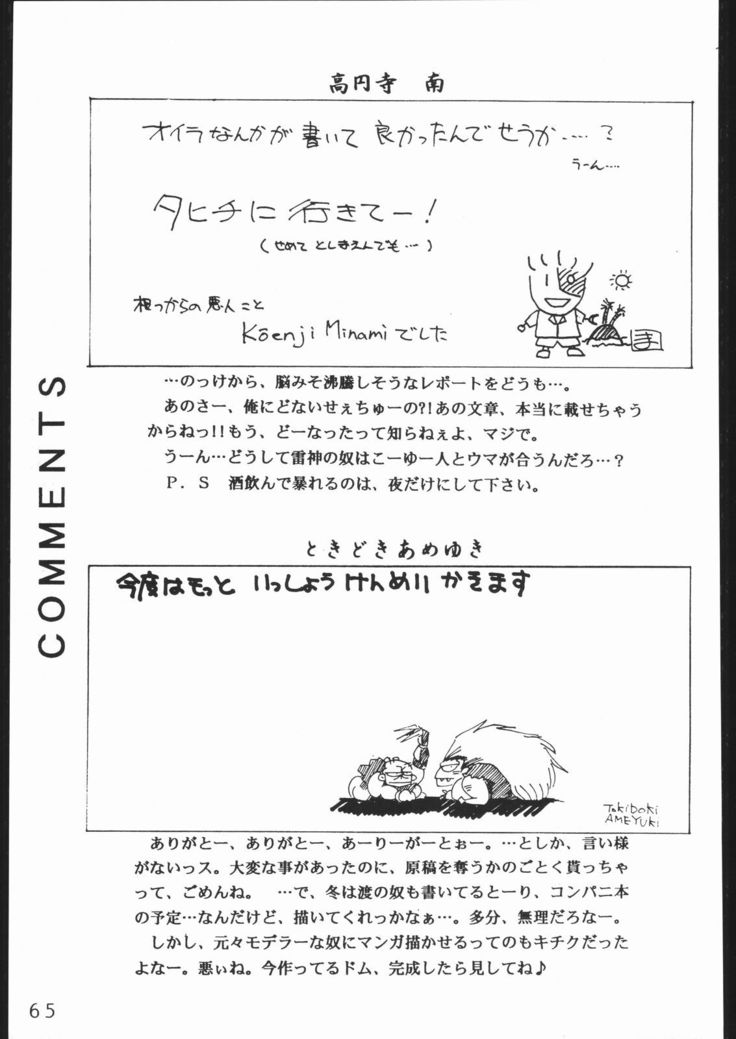 高円寺　南
オイラなんかが書いて良かったんでせうか……?
うーん……
タヒチに行きてー!
(せめてとしまえんでも…)
根っからの悪人こと
Kōenji Minamiでした
ま
…のっけから、脳みそ沸騰しそうなレポートをどうも…。
あのさー、俺にどないせぇちゅーの?!あの文章、本当に載せちゃう
からねっ!!もう、どーなったって知らねぇよ、マジで。
うーん…どうして雷神の奴はこーゆー人とウマが合うんだろ…?
P.S　酒飲んで暴れるのは、夜だけにして下さい。
COMMENTS
ときどきあめゆき
今度はもっと いっしょうけんめい かきます
TokiDoki
AMEYUKi
ありがとー、ありがとー、あーりーがーとぉー。…としか、言い様
がないっス。大変な事があったのに、原稿を奪うかのごとく貰っちゃ
って、ごめんね。　…で、冬は渡の奴も書いてるとーり、コンパニ本
の予定…なんだけど、描いてくれっかなぁ…。多分、無理だろなー。
しかし、元々モデラーな奴にマンガ描かせるってのもキチクだった
よなー。悪ぃね。今作ってるドム、完成したら見してね♪
65